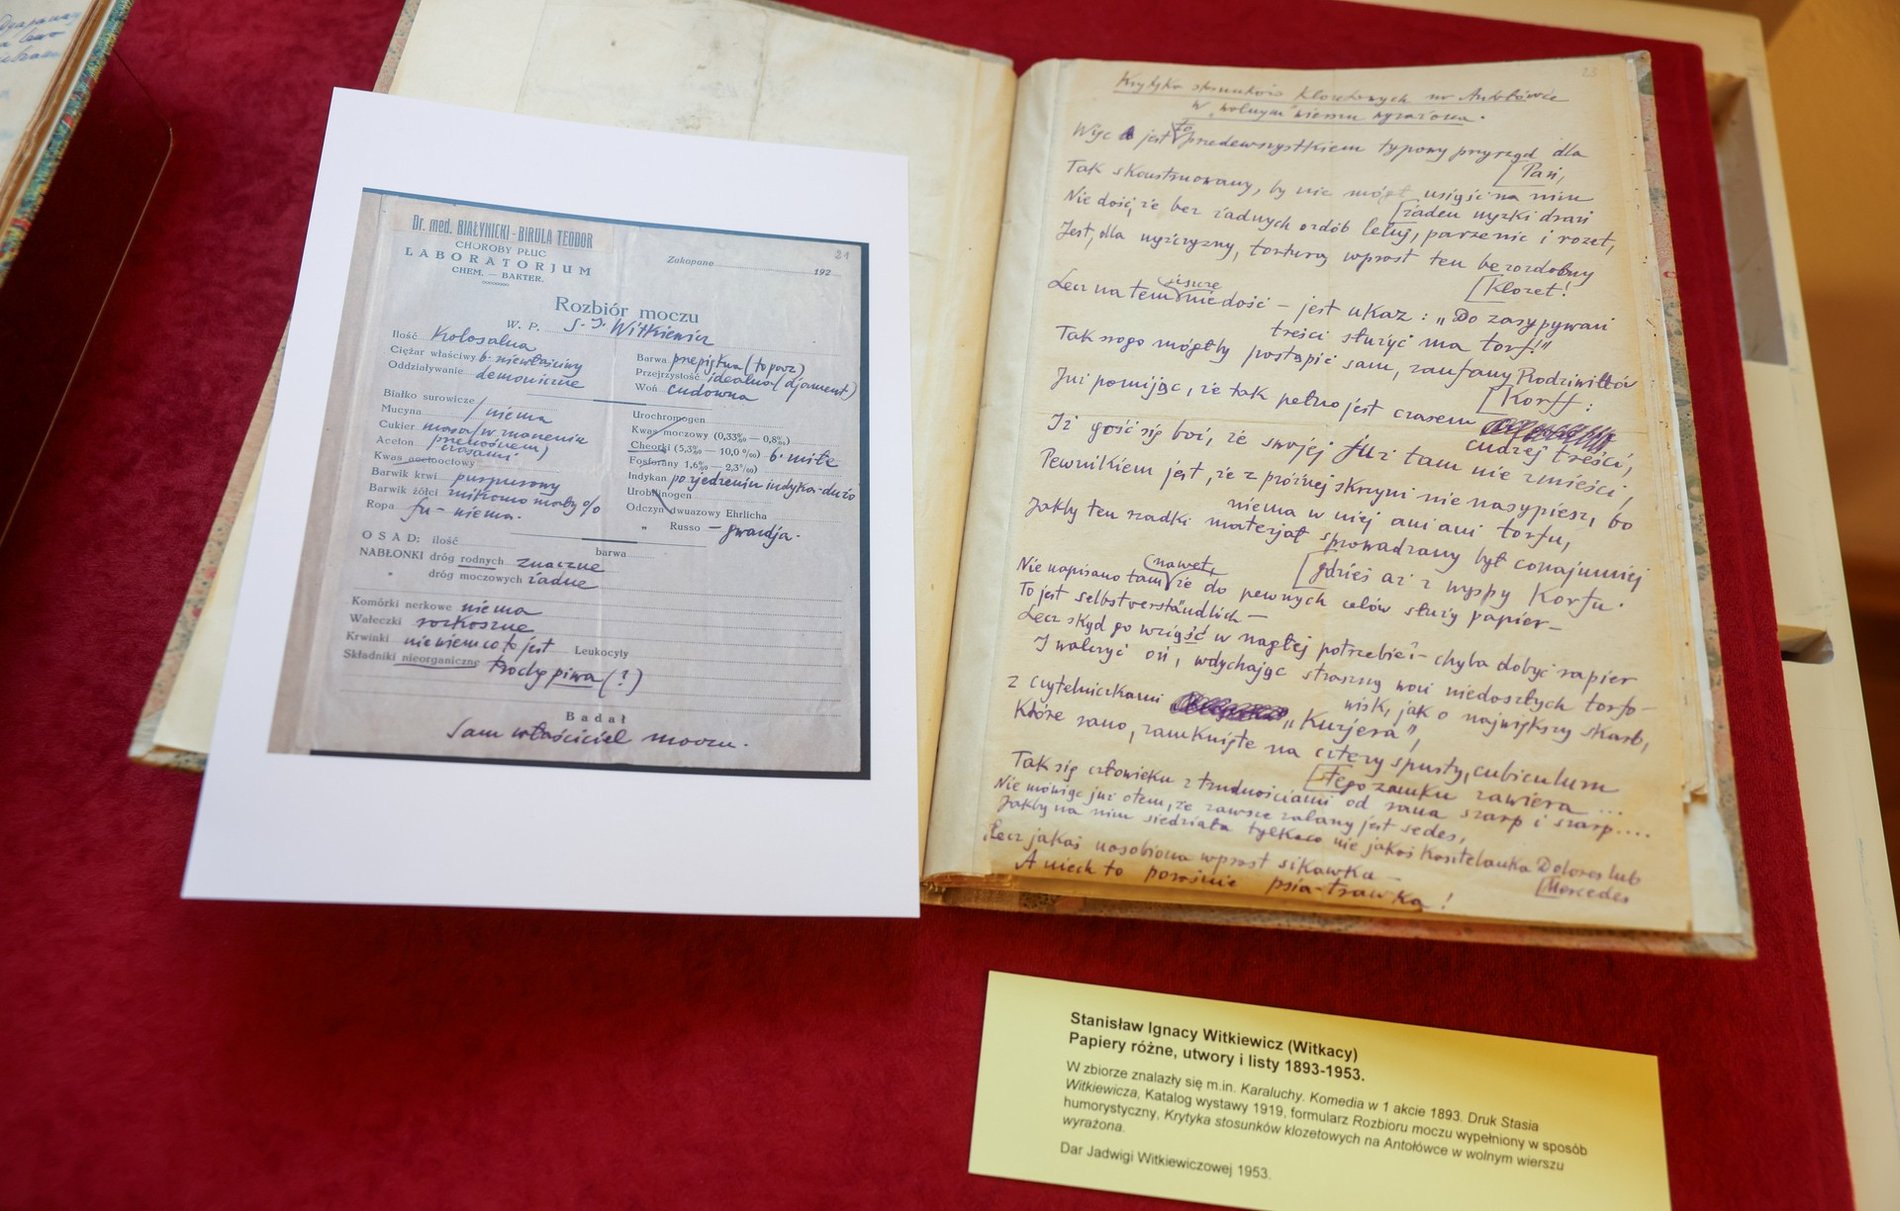 Dr. med. BIAŁYNICKI-BIRULA TEODOR
CHOROBY PŁUC
LABORATORJUM
CHEM. — BAKTER.
Zakopane 192
21
Rozbiór moczu
W. P. S. I. Witkiewicz
Ilość Kolosalna
Ciężar właściwy b. niewłaściwy
Oddziaływanie demoniczne
Barwa przepiękna (topaz)
Przejrzystość idealna (djament)
Woń cudowna
Białko surowicze
Mucyna / niema
Cukier masa/w znaczeniu
Aceton przenośnem)
Kwas acetooctowy
Barwik krwi purpurowy
Barwik żółci
Ropa fu - niema.
Urochromogen
Kwas moczowy (0,33‰ — 0,8‰)
Chlorki (5,3‰ — 10,0‰) b. miłe
Fosforany 1,6‰ — 2,3‰)
Indykan po zjedzeniu indyka - dużo
Urobilinogen
Odczyn dwuazowy Ehrlicha
" Russo — gwardja.
OSAD: ilość barwa
NABŁONKI dróg rodnych znaczne
" dróg moczowych żadne
Komórki nerkowe niema
Wałeczki rozkoszne
Krwinki nie wiem co to jest Leukocyty
Składniki nieorganiczne trochę piwa (?)
Badał
Sam właściciel moczu.
23
Krytyka stosunków klozetowych na Antołówce
w „wolnym" wierszu wyrażona.
Więc jest to przedewszystkiem typowy przyrząd dla
[Pań,
Tak skonstruowany, by nie mógł usiąść na nim
[żaden męzki drań
Nie dość, że bez żadnych ozdób letuj, parzenic i rozet,
Jest, dla mężczyzny, torturą wprost ten bezozdobny
[Klozet!
Lecz na tem jeszcze niedość — jest ukaz: „Do zasypywań
treści służyć ma torf!"
Tak srogo mógłby postąpić sam, zaufany Radziwiłłów
[Korff:
Już pomijając, że tak pełno jest czasem
cudzej treści,
Iż gość się boi, że swojej już tam nie zmieści,
Pewnikiem jest, że z próżnej skrzyni nie nasypiesz, bo
niema w niej ani ani torfu,
Jakby ten rzadki materjał sprowadzany był conajmniej
[gdzieś aż z wyspy Korfu.
Nie napisano tam nawet, że do pewnych celów służy papier—
To jest selbstverständlich —
Lecz skąd go wziąść w nagłej potrzebie? — chyba dobyć rapier
I walczyć oń, wdychając straszną woń niedoszłych torfo-
wisk, jak o największy skarb,
z czytelniczkami „Kurjera",
Które rano, zamknięte na cztery spusty, cubiculum
[tego zamku zawiera ...
Tak się człowieku z trudnościami od rana szarp i szarp....
Nie mówiąc już o tem, że zawsze zalany jest sedes,
Jakby na nim siedziała tylko co nie jakaś Kasztelanka Dolores lub
[Mercedes
Lecz jakaś uosobiona wprost sikawka —
A niech to porośnie psia-trawka!
Stanisław Ignacy Witkiewicz (Witkacy)
Papiery różne, utwory i listy 1893-1953.
W zbiorze znalazły się m.in. Karaluchy. Komedia w 1 akcie 1893. Druk Stasia
Witkiewicza, Katalog wystawy 1919, formularz Rozbioru moczu wypełniony w sposób
humorystyczny, Krytyka stosunków klozetowych na Antołówce w wolnym wierszu
wyrażona.
Dar Jadwigi Witkiewiczowej 1953.